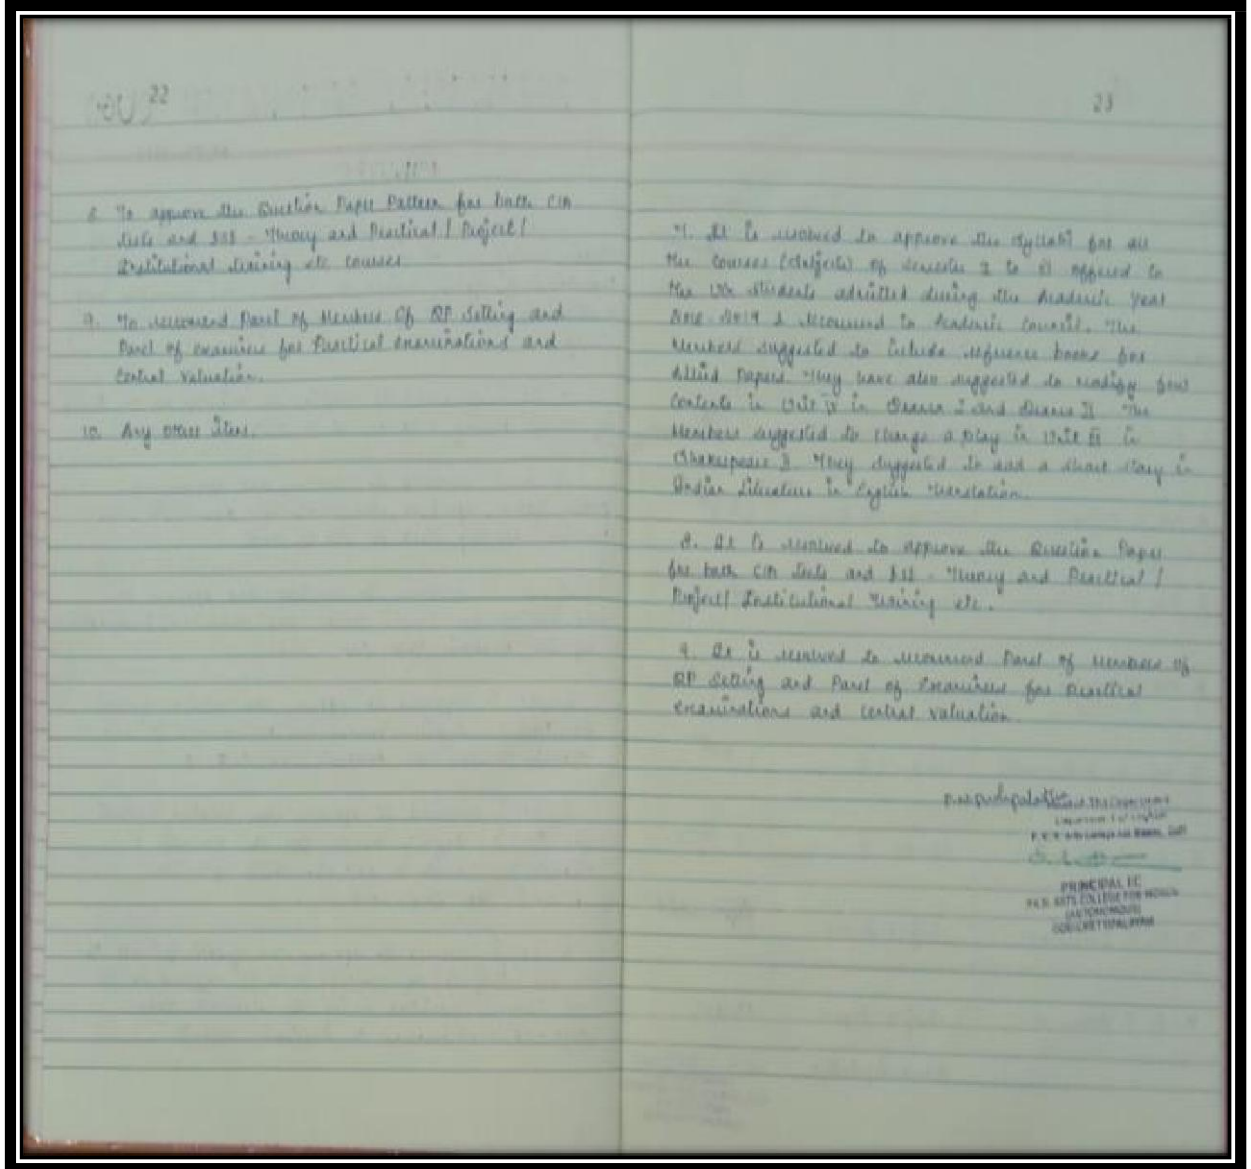 22
8. To approve the Question Paper Pattern for both CIA
tests and ESE - Theory and Practical / Project /
Institutional training etc courses
9. To recommend Panel of Members of QP Setting and
Panel of examiners for Practical examinations and
Central Valuation.
10. Any other item.
23
7. It is resolved to approve the syllabi for all
the courses (Subjects) of semester I to VI offered to
the UG students admitted during the Academic Year
2018-2019 & recommend to Academic Council. The
Members suggested to include reference books for
Allied Papers. They have also suggested to modify few
contents in Unit IV in Drama I and Drama II. The
Members suggested to change a play in Unit III in
Shakespeare II. They suggested to add a short story in
Indian Literature in English Translation.
8. It is resolved to approve the Question Paper
for both CIA tests and ESE - Theory and Practical /
Project / Institutional Training etc.
9. It is resolved to recommend Panel of Members of
QP Setting and Panel of Examiners for Practical
examinations and central valuation.
Department of English
PRINCIPAL I/C
P.K.R. ARTS COLLEGE FOR WOMEN
(AUTONOMOUS)
GOBICHETTIPALAYAM